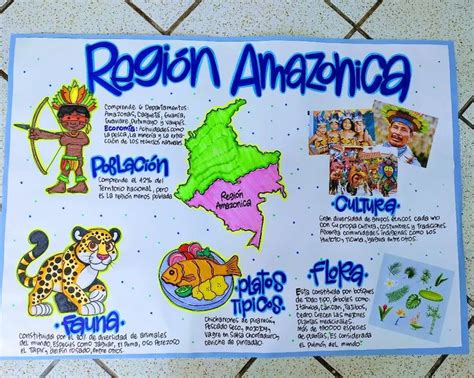 Región Amazonica
Comprende 6 Departamentos:
Amazonas, Caquetá, Guainía,
Guaviare, Putumayo y Vaupés.
Economía: Actividades como
la pesca, la minería y la extra-
cción de los recursos naturales
Población
Comprende el 42% del
Territorio nacional, pero
es la región menos poblada
Región
Amazonica
Cultura
Gran diversidad de grupos étnicos cada uno
con su propia cultura, costumbres y tradiciones.
comunidades indígenas como los
Huitoto, Ticuna, entre otros.
Fauna
Constituida por el diversidad de animales
del mundo, especies como Jaguar, el Puma, oso Perezoso
el Tapir, delfín rosado, entre otros.
Platos
Típicos
Chicharrones de pirarucú,
Pescado seco, mojojoy,
ceviche de pintadillo
Flora
Esta constituida por bosques
de todo tipo, árboles como:
Crecen las mejores
plantas medicinales,
más de especies
de plantas. Es considerada
el pulmón del mundo.